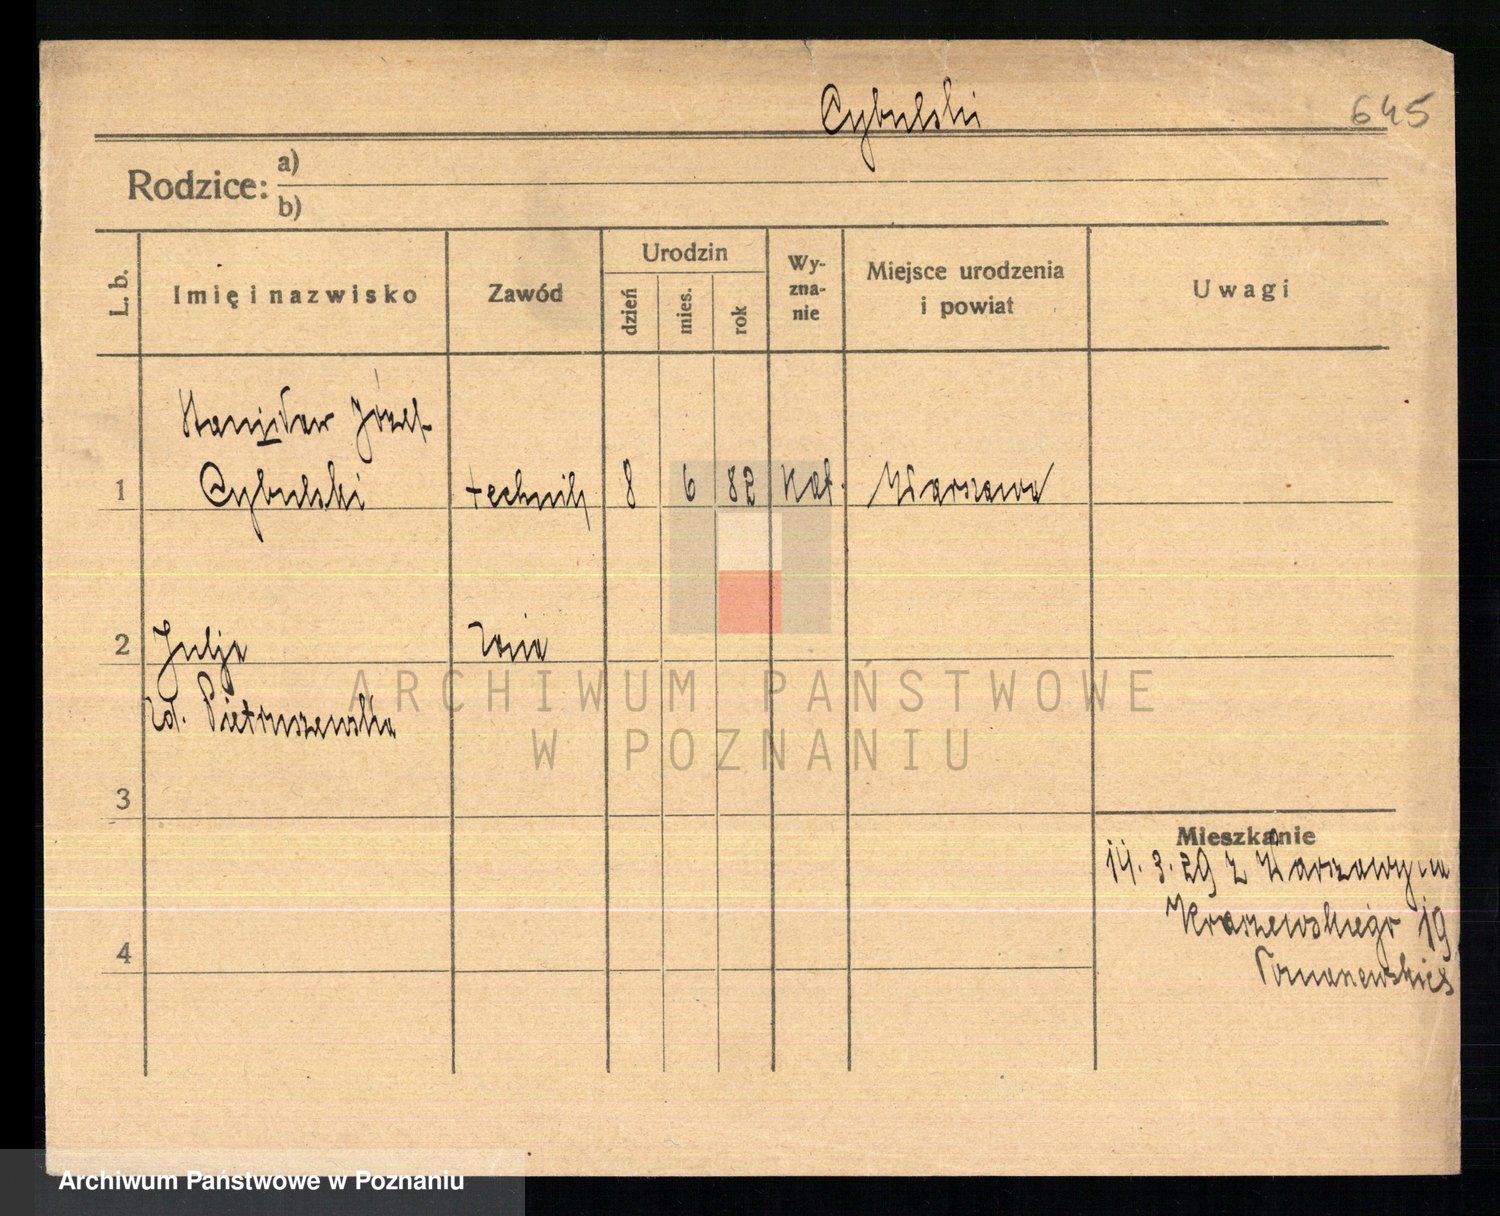 Cybulski
645
Rodzice: a)
b)
L. b.
Imię i nazwisko
Zawód
Urodzin
dzień
mies.
rok
Wy-
zna-
nie
Miejsce urodzenia
i powiat
Uwagi
Stanisław Józef
1 Cybulski technik 8 6 82 kat. Warszawa
2 Julja żona
zd. Pietruszewska
3
Mieszkanie
14. 3. 29 z Warszawy na
Kraszewskiego 19
4
ARCHIWUM PAŃSTWOWE
W POZNANIU
Archiwum Państwowe w Poznaniu